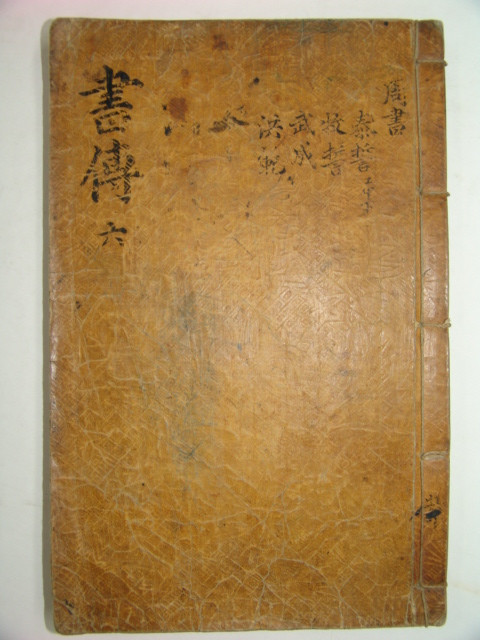 周書
泰誓上中下
牧誓
武成
洪範
書傳 六